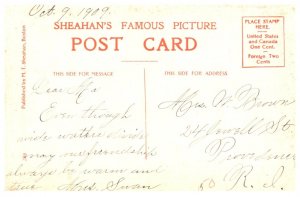 Oct. 9, 1909.
SHEAHAN'S FAMOUS PICTURE
POST CARD
PLACE STAMP
HERE
United States
and Canada
One Cent.
Foreign Two
Cents
Published by M. T. Sheahan, Boston
THIS SIDE FOR MESSAGE
THIS SIDE FOR ADDRESS
Dear Ma
Even though
wide waters divide
may our friendship
always be warm and
true. Mrs. Swan
Mrs W Brown
24 Lowell St.
Providence
R. I.